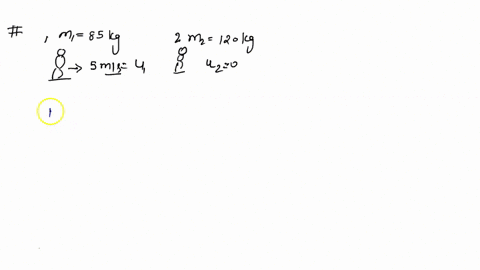 # 1 m₁ = 85 kg 2 m₂ = 120 kg
→ 5 m/s = u₁ u₂ = 0